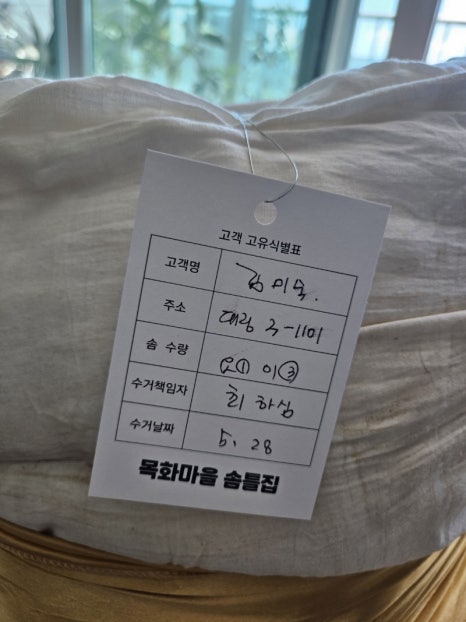 고객 고유식별표
고객명 김미옥.
주소 대림 3-1101
솜 수량 요① 이③
수거책임자 최하심
수거날짜 5. 28
목화마을 솜틀집